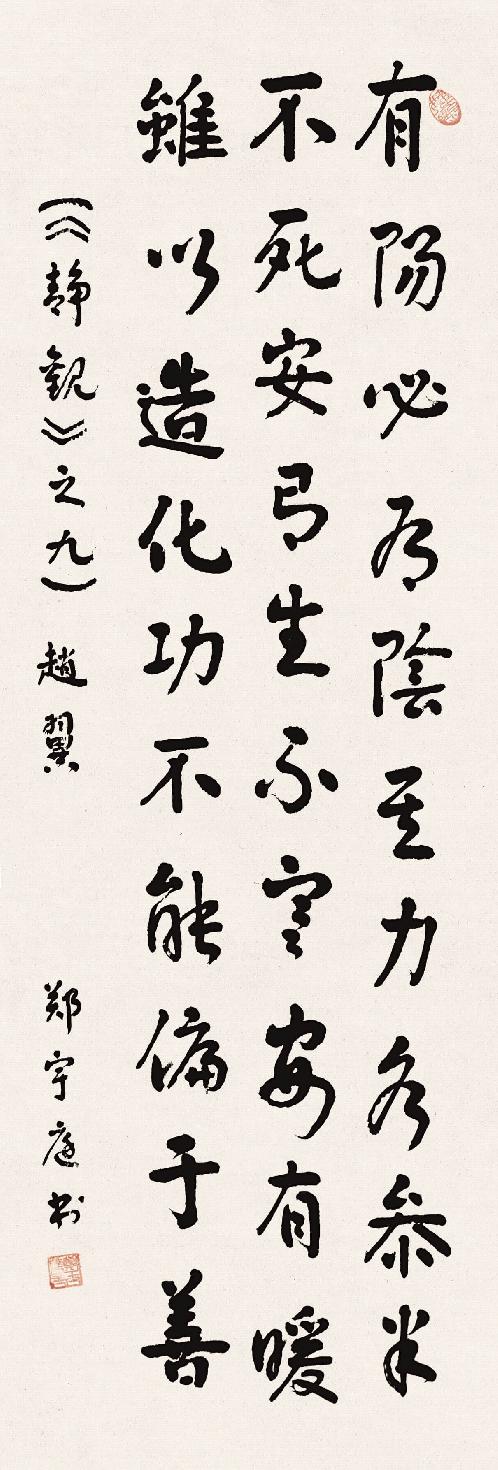 有陽必有陰其力各參半
不死安有生不寒安有暖
雖以造化功不能偏于善
(《靜觀》之九) 趙翼
郑宇庭书